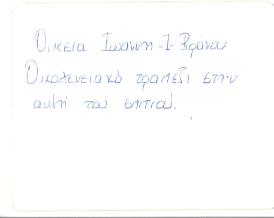 Οικεία Ιωάννη -Ι- Βράνου
Οικογενειακό τραπέζι στην
αυλή του σπιτιού.